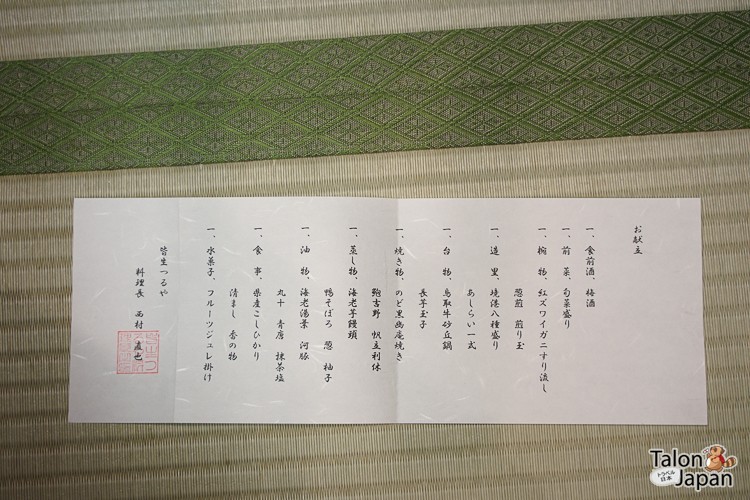 お献立
一、食前酒、梅酒
一、前　菜、旬菜盛り
一、椀　物、紅ズワイガニすり流し
葱煎　煎り玉
一、造　里、境港八種盛り
あしらい一式
一、台　物、鳥取牛砂丘鍋
長芋玉子
一、焼き物、のど黒幽庵焼き
鮑吉野　帆立利休
一、蒸し物、海老芋饅頭
鴨そぼろ　葱　柚子
一、油　物、海老湯葉　河豚
丸十　青唐　抹茶塩
一、食　事、県産こしひかり
清まし　香の物
一、水菓子、フルーツジュレ掛け
皆生つるや
料理長　西村　直也
Talon Japan
トラベル日本